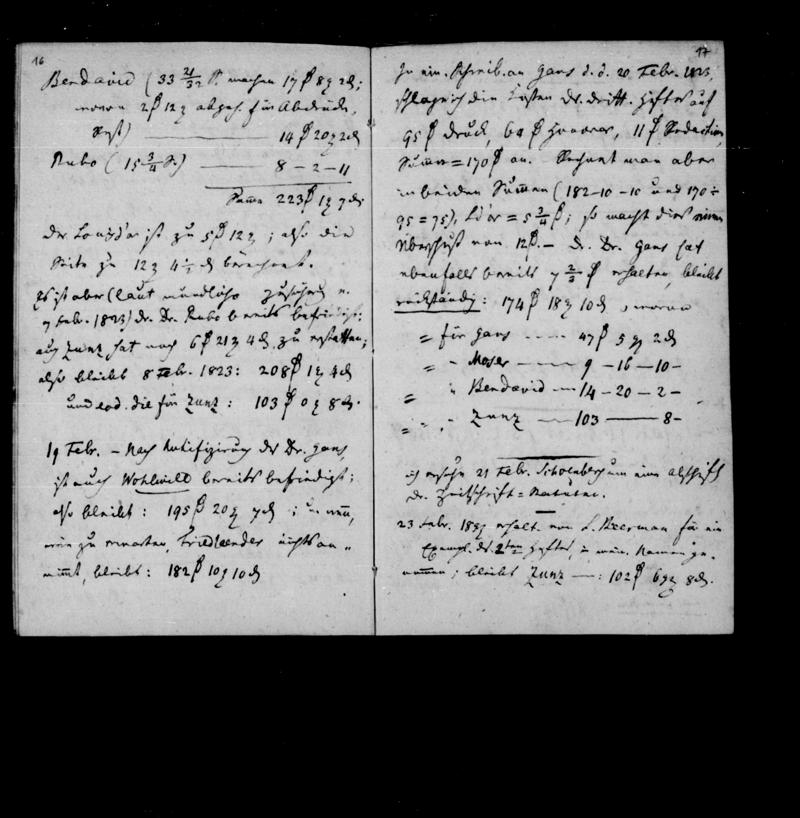 16
Bendavid (33 21/32 S. machen 17 ₰ 8 g 2 d;
wovon 2 ₰ 12 g abgeh. für Abdrücke,
Rest) — 14 ₰ 20 g 2 d
Rubo (15 3/4 S.) — 8 – 2 – 11
Summe 223 ₰ 1 g 7 d.
Der Louisd'or ist zu 5 ₰ 12 g; also die
Seite zu 12 g 4 1/2 d berechnet.
Es ist aber (laut mündlicher v.
7 Febr. 1823) Dr. Dr. Rubo bereits befriedigt;
auch Zunz hat noch 6 ₰ 21 g 4 d zu erstatten;
also bleibt 8 Febr. 1823: 208 ₰ 1 g 4 d
und eod. die für Zunz: 103 ₰ 0 g 8 d.
19 Febr. – Nach Notifizirung des Dr. Gans,
ist auch Wohlwill bereits befriedigt;
also bleibt: 195 ₰ 20 g 7 d; u. wenn,
wie zu erwarten, Friedlaender nichts an-
nimmt, bleibt: 182 ₰ 10 g 10 d
17
In ein. Schreib. an Gans d. d. 20 Febr. 1823,
schlage ich die Kosten des dritt. Heftes auf
95 ₰ Druck, 64 ₰ Honorar, 11 ₰ Redaction,
Summe = 170 ₰ an. Rechnet man aber
in beiden Summen (182–10–10 und 170 ÷
95 = 75), Ld'or = 5 3/4 ₰; so macht dies einen
Überschuß von 12 ₰. – D. Dr. Gans hat
ebenfalls bereits 7 2/3 ₰ erhalten, bleibt
rückständig: 174 ₰ 18 g 10 d, wovon
= für Gans — 47 ₰ 5 g 2 d
= " Moser — 9 – 16 – 10 –
= " Bendavid — 14 – 20 – 2 –
= " " Zunz — 103 — 8 –
ich ersuche 21 Febr. Schönberg um eine Abschrift
der Zeitschrift-Statuten.
23 Febr. 1823 erhalt. von L. für ein
Exempl. des 2ten Heftes, in mein. Namen ge-
nommen; bleibt Zunz — : 102 ₰ 6 g 8 d.